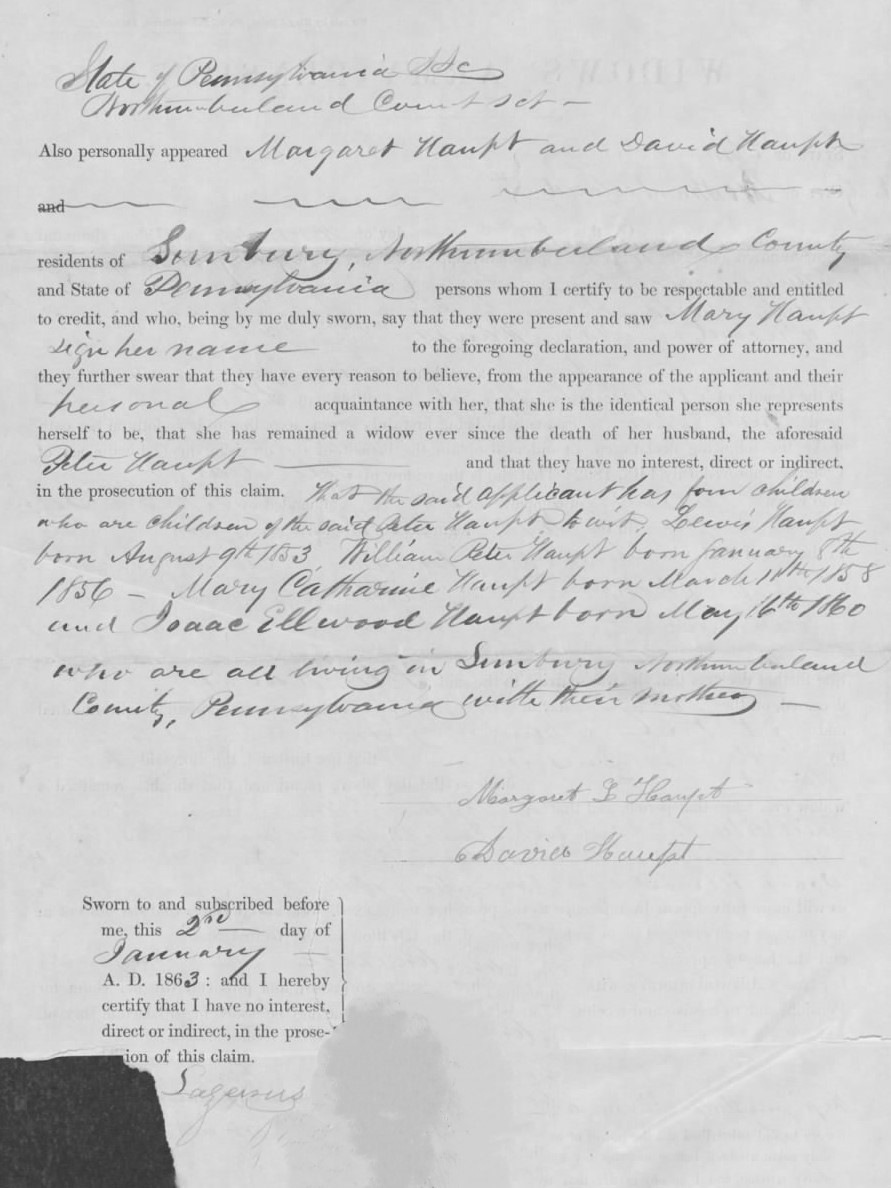 State of Pennsylvania Sc
Northumberland County sct -
Also personally appeared Margaret Haupt and David Haupt
and
residents of Sunbury, Northumberland County
and State of Pennsylvania persons whom I certify to be respectable and entitled
to credit, and who, being by me duly sworn, say that they were present and saw Mary Haupt
sign her name to the foregoing declaration, and power of attorney, and
they further swear that they have every reason to believe, from the appearance of the applicant and their
personal acquaintance with her, that she is the identical person she represents
herself to be, that she has remained a widow ever since the death of her husband, the aforesaid
Peter Haupt and that they have no interest, direct or indirect,
in the prosecution of this claim. That the said applicant has four children
who are children of the said Peter Haupt to wit, Lewis Haupt
born August 9th 1853 William Peter Haupt born January 8th
1856 - Mary Catharine Haupt born March 11th 1858
and Isaac Ellwood Haupt born May 16th 1860
who are all living in Sunbury Northumberland
County, Pennsylvania with their mother -
Margaret L Haupt
David Haupt
Sworn to and subscribed before
me, this 2nd day of
January
A. D. 1863: and I hereby
certify that I have no interest,
direct or indirect, in the prose-
ion of this claim.